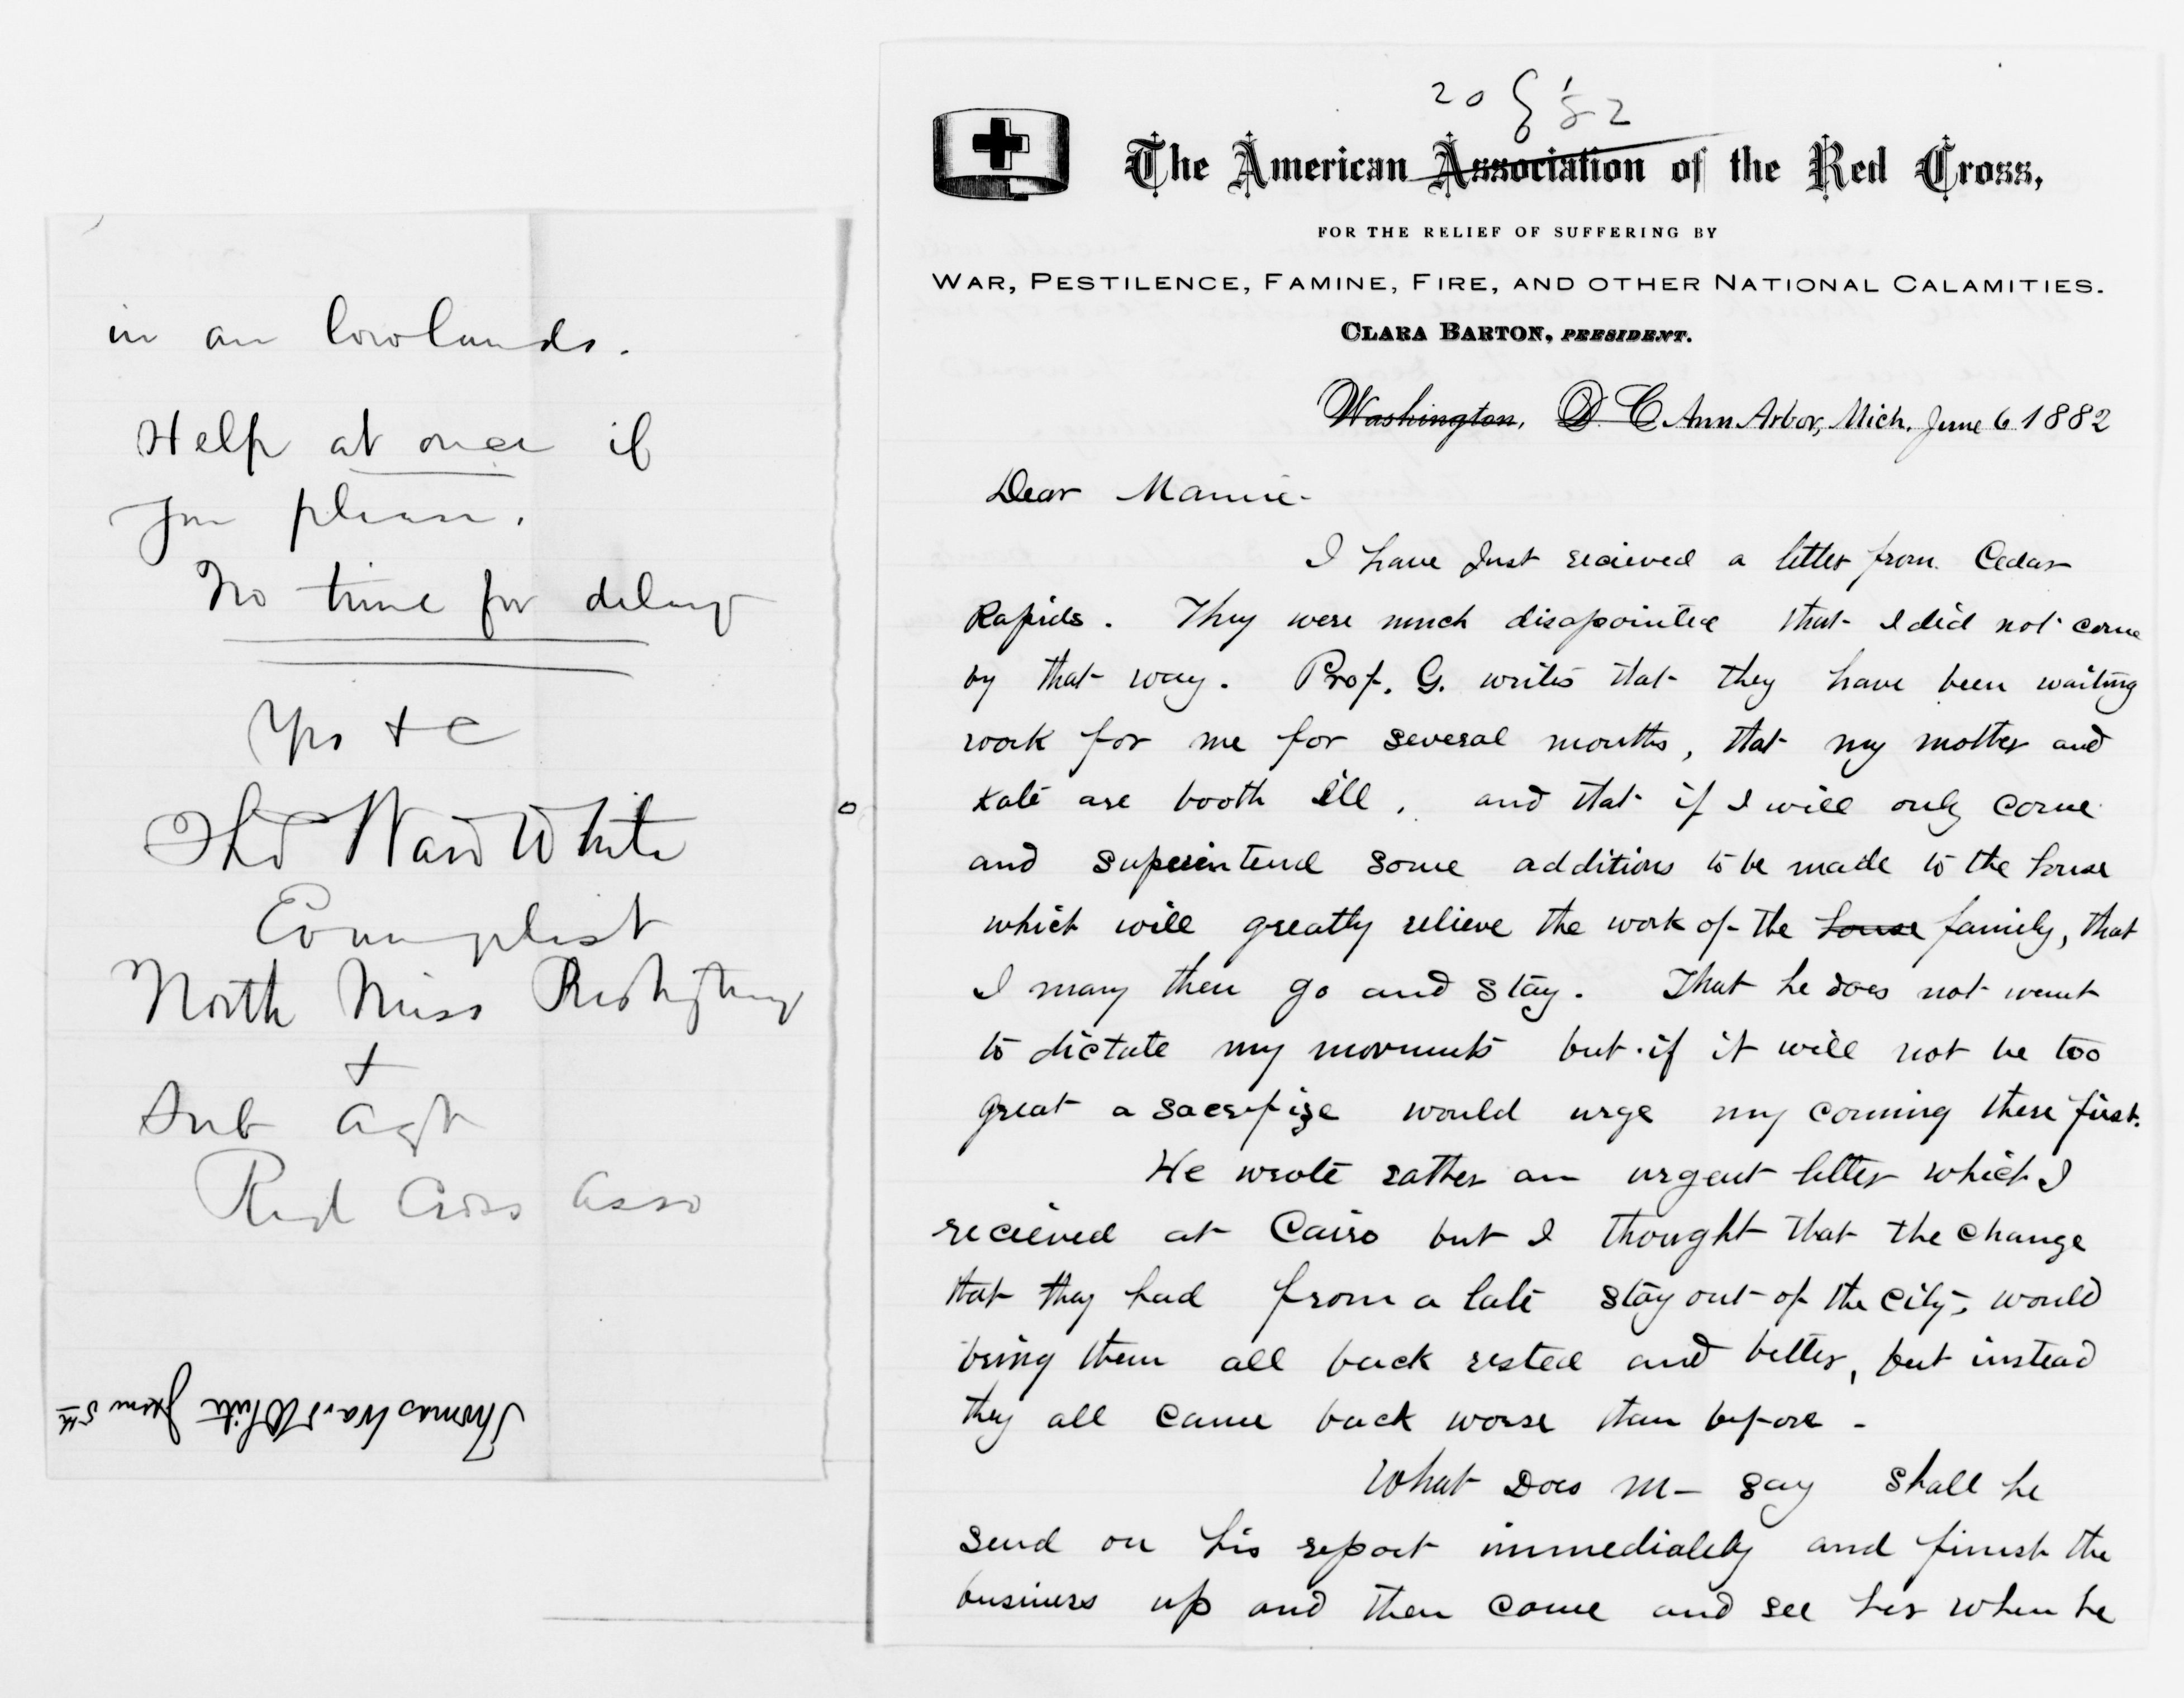 in an lowlands.
Help at once if
you please.
No time for delay
Yrs + c
Thos Ward White
Evangelist
North Miss Presbytery
+
Sub Agt
Red Cross Asso
Thomas Ward White June 5th
20 82
The American Association of the Red Cross,
FOR THE RELIEF OF SUFFERING BY
WAR, PESTILENCE, FAMINE, FIRE, AND OTHER NATIONAL CALAMITIES.
CLARA BARTON, PRESIDENT.
Washington, D. C. Ann Arbor, Mich. June 6 1882
Dear Mamie-
I have Just recieved a letter from Cedar
Rapids. They were much disapointed that I did not come
by that way. Prof. G. writes that they have been waiting
work for me for several mouths, that my mother and
Kate are booth ill, and that if I will only come
and superintend some additions to be made to the house
which will greatly relieve the work of the house family, that
I many then go and stay. That he does not want
to dictate my movments but if it will not be too
great a sacrifize would urge my coming there first.
He wrote rather an urgent letter which I
recieved at Cairo but I thought that the change
that they had from a late stay out of the city, would
bring them all back rested and better, but instead
they all came back worse than before -
What Does M- say shall he
send on his report immediately and finish the
business up and then come and see her when he